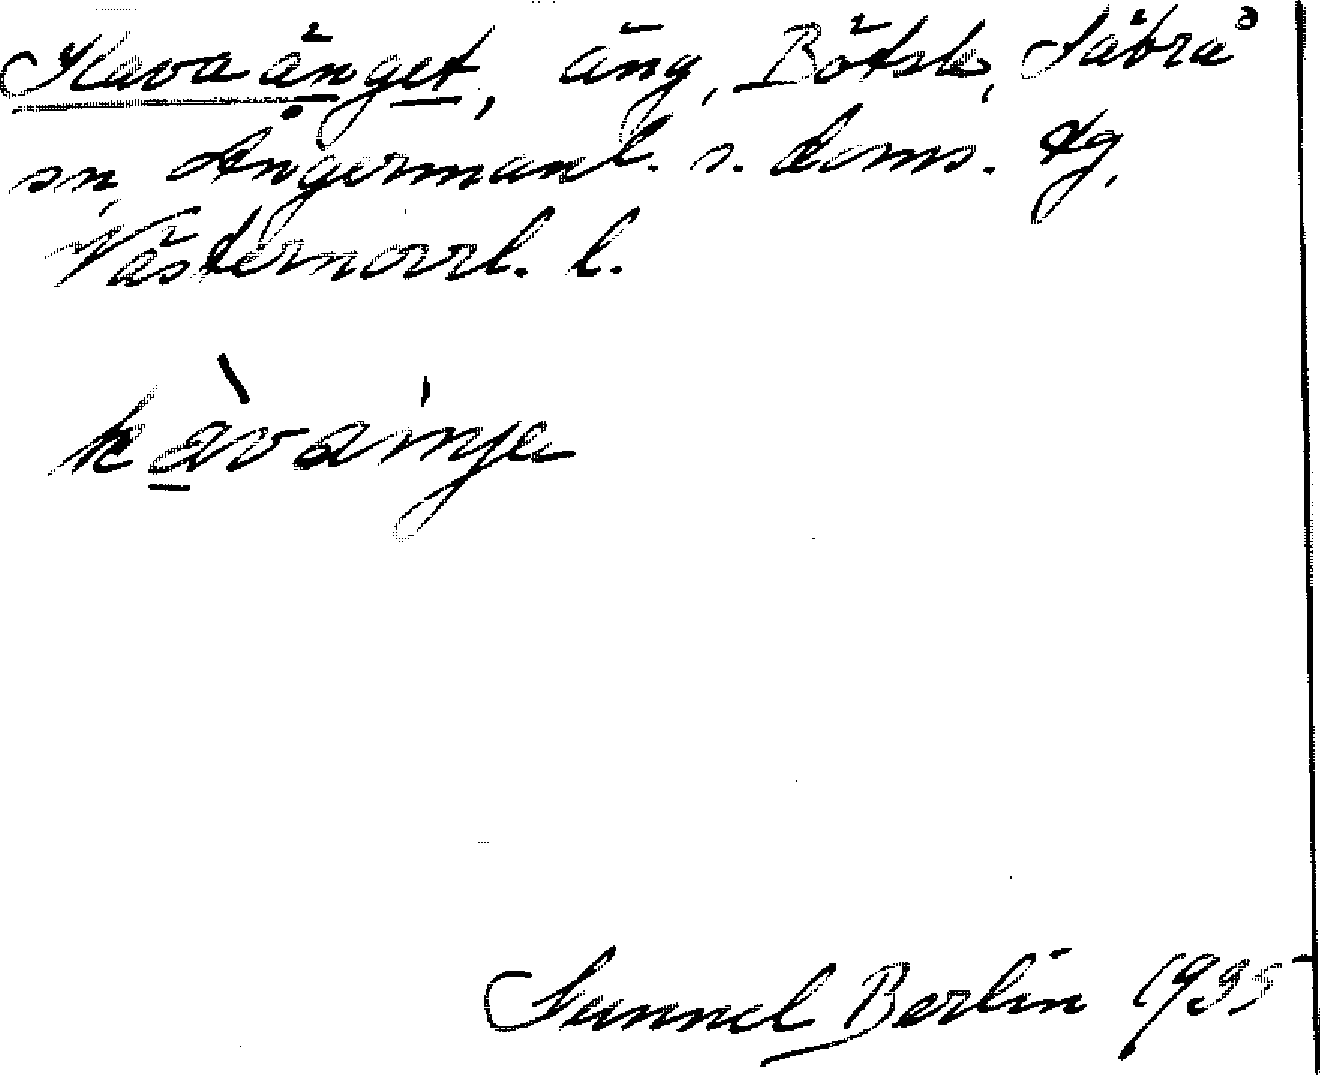 Kavaänget, äng, Bötsle, Säbrå
sn, Ångermanl. s. doms. tg,
Västernorrl. l.
kàvaınje
Gunnel Berlin 1935